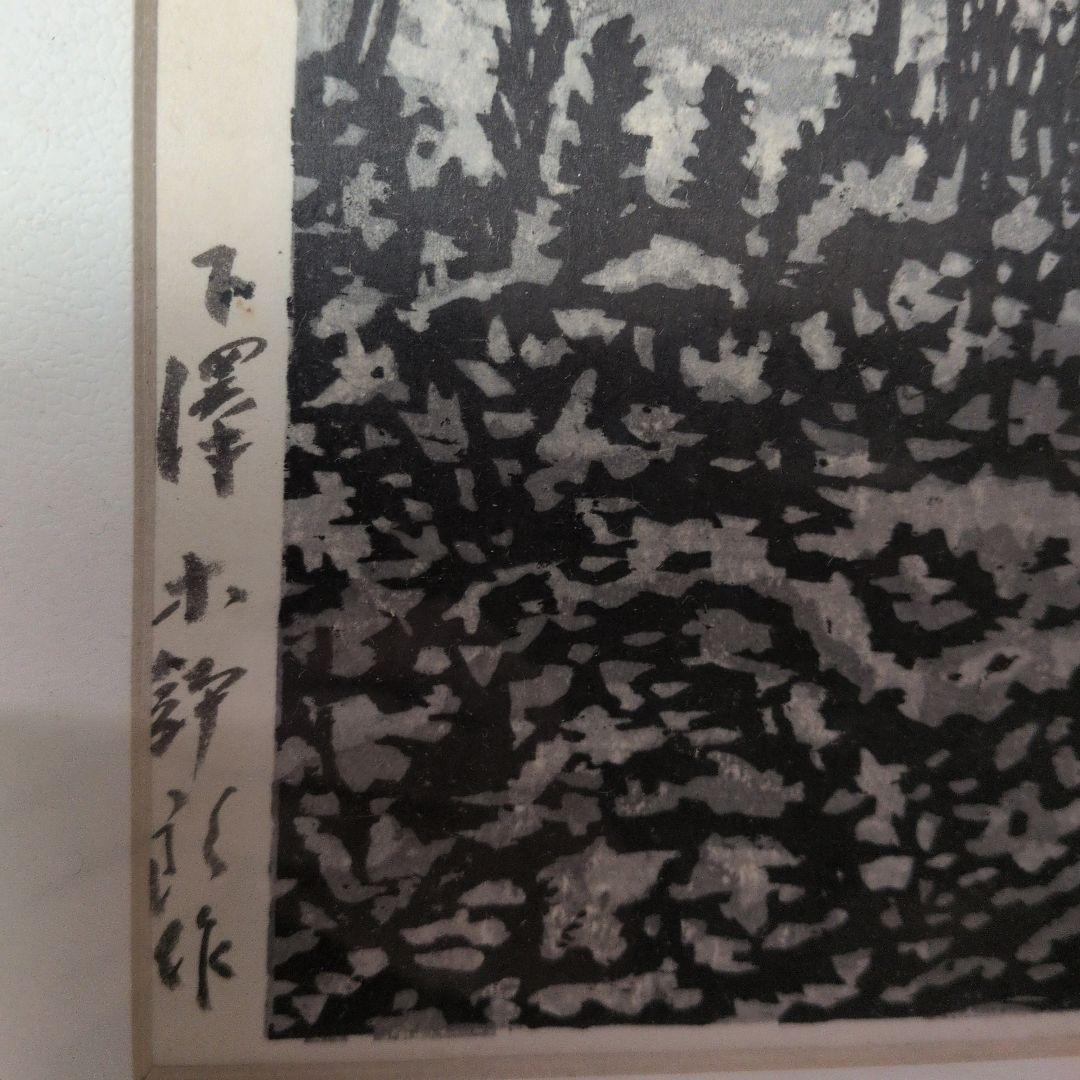 下澤木鉢郎作